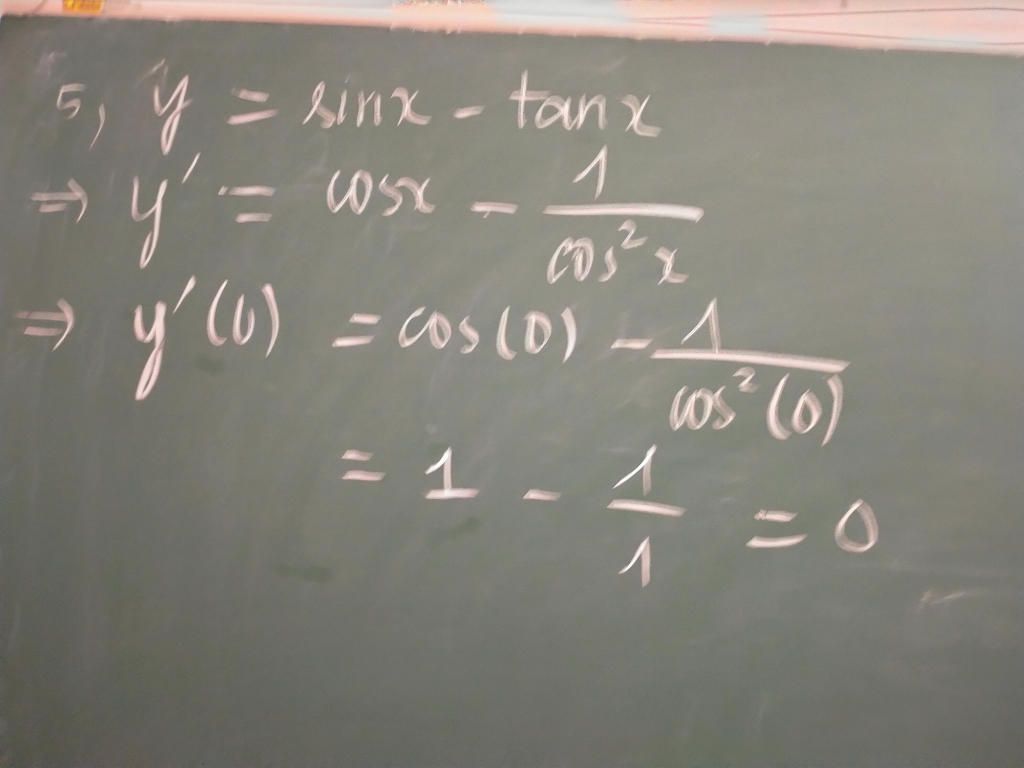 5, y = sinx - tanx
⇒ y' = cosx - 1/cos²x
⇒ y'(0) = cos(0) - 1/cos²(0)
= 1 - 1/1 = 0